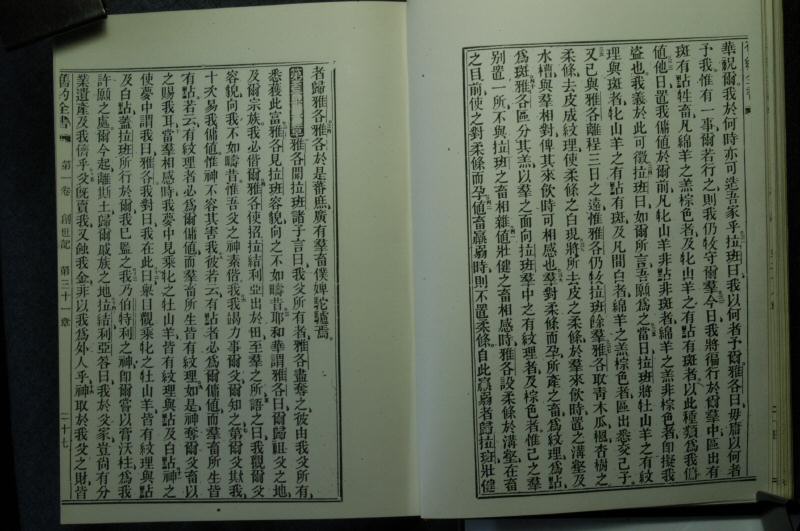 華祝爾我於何時亦可造吾家乎拉班曰我以何者予爾雅各曰毋庸以何者
予我惟有一事爾若行之則我仍牧守爾羣今日我將徧行於爾羣中區出有
斑有玷牲畜凡綿羊之羔棕色者及牝山羊之有玷有斑者以此種類爲我傭
值他日置我傭值於爾前凡牝山羊非玷非斑者綿羊之羔非棕色者卽擬我
盜也我義於此可徵拉班曰如爾所言吾願爲之當日拉班將牡山羊之有紋
理與斑者牝山羊之有玷有斑及凡間白者綿羊之羔棕色者區出悉交己子
又已與雅各離程三日之遠惟雅各仍牧拉班餘羣雅各取青木瓜楓杏樹之
柔條去皮成紋理使柔條之白現將所去皮之柔條於羣來飲時置之溝壑及
水槽與羣相對俾其來飲時可相感也羣對柔條而孕所產之畜爲紋理爲玷
爲斑雅各區分其羔以羣之面向拉班羣中之有紋理者及棕色者惟己之羣
別置一所不與拉班之畜相雜値壯健之畜相感時雅各設柔條於溝壑在畜
之目前使之對柔條而孕値畜羸弱時則不置柔條自此羸弱者歸拉班壯健
者歸雅各雅各於是蕃庶廣有羣畜僕婢駝驢焉
雅各聞拉班諸子言曰我父所有者雅各盡奪之彼由我父所有
悉獲此富雅各見拉班容貌向之不如疇昔耶和華謂雅各曰爾歸祖父之地
及爾宗族我必偕爾雅各使招拉結利亞出於田至羣之所語之曰我觀爾父
容貌向我不如疇昔惟吾父之神素偕我我竭力事爾父爾知之第爾父欺我
十次易我傭値惟神不容其害我彼若云有玷者必爲爾傭値而羣畜所生皆
有玷若云有紋理者必爲爾傭値而羣畜所生皆有紋理如是神奪爾父畜以
之賜我耳當羣相感時我夢中見乘牝之牡山羊皆有紋理與玷及白點神之
使夢中謂我曰雅各我對曰我在此曰舉目觀乘牝之牡山羊皆有紋理與玷
及白點蓋拉班所行於爾我已監之我乃伯特利之神卽爾嘗以膏沃柱爲我
許願之處爾今起離斯土歸爾戚族之地拉結利亞答曰我於父家豈尙有分
業遺產及我儕乎父旣賣我又蝕我金非以我爲外人乎神取於我父之財皆
舊約全書 第一卷 創世記 第三十一章 二十七